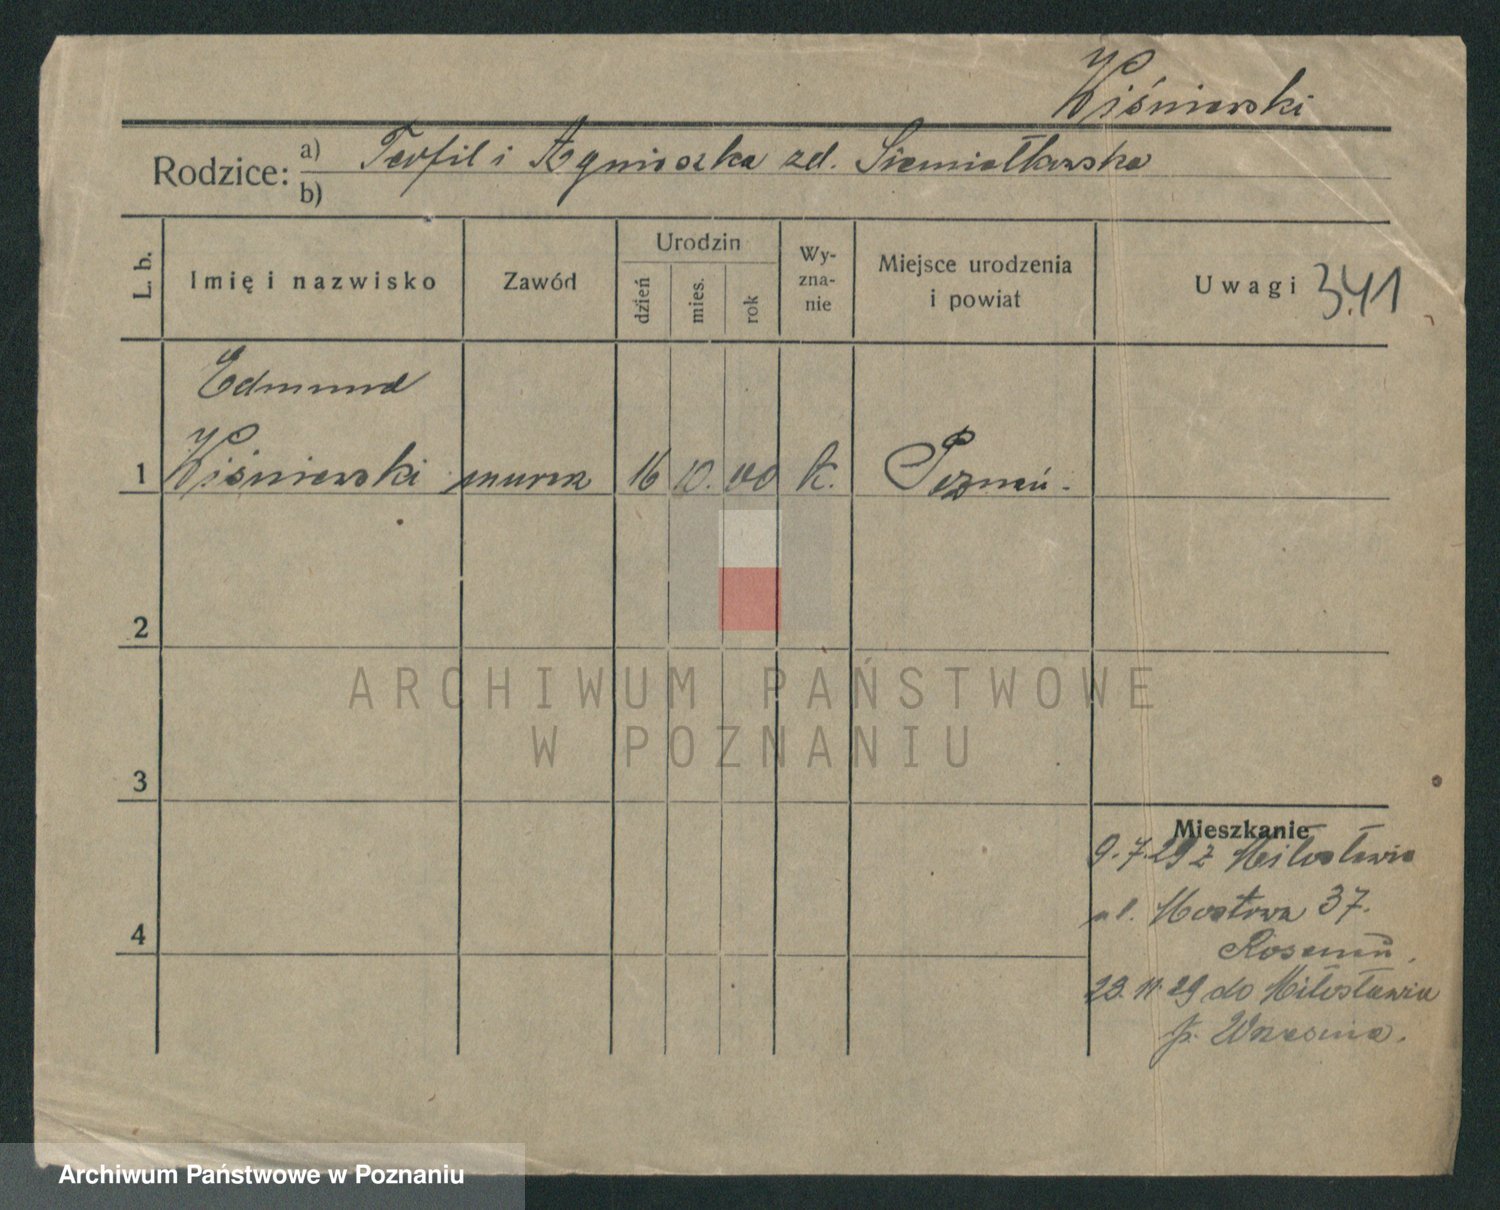 Wiśniewski
Rodzice: a) Teofil i Agnieszka zd. Siemiątkowska
b)
L. b. Imię i nazwisko Zawód Urodzin dzień mies. rok Wy-zna-nie Miejsce urodzenia i powiat Uwagi 341
Edmund
1 Wiśniewski murarz 16 10. 00 k. Poznań.
2
ARCHIWUM PAŃSTWOWE
W POZNANIU
3
Mieszkanie
9.7.29 z Miłosławia
ul. Mostowa 37.
4
23.11.29 do Miłosławia
p. Września.
Archiwum Państwowe w Poznaniu